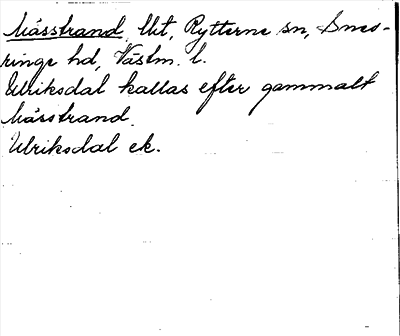 Måsstrand, lht, Rytterne sn, Snev-
ringe hd, Västm. l.
Ulriksdal kallas efter gammalt
Måsstrand.
Ulriksdal ek.